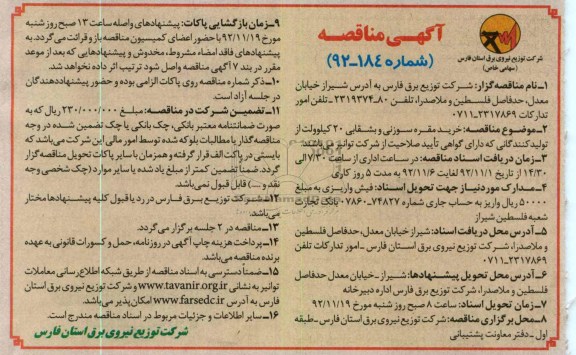 آگهی مناقصه
(شماره ۱۸٤-۹۲)
شرکت توزیع نیروی برق استان فارس
(سهامی خاص)
۱-نام مناقصه‌گزار: شرکت توزیع برق فارس به آدرس شیراز خیابان
معدل، حدفاصل فلسطین و ملاصدرا، تلفن ۸۰-۲۳۱۹۳۷۴-تلفن امور
تدارکات ۲۳۱۷۸۶۹-۰۷۱۱
۲-موضوع مناقصه: خرید مقره سوزنی و بشقابی ۲۰ کیلوولت از
تولیدکنندگانی که دارای گواهی تأیید صلاحیت از شرکت توانیر می‌باشند.
۳-زمان دریافت اسناد مناقصه: در ساعت اداری از ساعت ۷/۳۰ الی
۱۴/۳۰ از تاریخ ۹۲/۱۱/۱ لغایت ۹۲/۱۱/۶ به مدت ۵ روز کاری
۴-مدارک موردنیاز جهت تحویل اسناد: فیش واریزی به مبلغ
۵۰۰۰۰ ریال واریز به حساب جاری شماره ۷۴۸۲۷-۰۷۸۶۰ بانک تجارت
شعبه فلسطین شیراز
۵-آدرس محل دریافت اسناد: شیراز خیابان معدل، حدفاصل فلسطین
و ملاصدرا، شرکت توزیع نیروی برق استان فارس - امور تدارکات تلفن
۲۳۱۷۸۶۹-۰۷۱۱
۶-آدرس محل تحویل پیشنهادها: شیراز-خیابان معدل حدفاصل
فلسطین و ملاصدرا، شرکت توزیع برق فارس اداره دبیرخانه
۷-زمان تحویل اسناد: ساعت ۸ صبح روز شنبه مورخ ۹۲/۱۱/۱۹
۸-محل برگزاری مناقصه: شرکت توزیع نیروی برق استان فارس-طبقه
اول-دفتر معاونت پشتیبانی
۹-زمان بازگشایی پاکات: پیشنهادهای واصله ساعت ۱۳ صبح روز شنبه
مورخ ۹۲/۱۱/۱۹ با حضور اعضای کمیسیون مناقصه باز و قرائت می‌گردد. به
پیشنهادهای فاقد امضاء مشروط، مخدوش و پیشنهادهایی که بعد از موعد
مقرر در بند ۷ آگهی مناقصه واصل شود ترتیب اثر داده نخواهد شد.
۱۰-ذکر شماره مناقصه روی پاکات الزامی بوده و حضور پیشنهاددهندگان
در جلسه آزاد است.
۱۱-تضمین شرکت در مناقصه: مبلغ ۲۳۰/۰۰۰/۰۰۰ ریال که به
صورت ضمانتنامه معتبر بانکی، چک بانکی یا چک تضمین شده در وجه
مناقصه‌گذار یا مطالبات بلوکه شده توسط امور مالی این شرکت می‌باشد که
بایستی در پاکت الف قرار گرفته و همزمان با سایر پاکات تحویل مناقصه‌گزار
گردد. ضمناً تضمین کمتر از مبلغ یاد شده یا سایر موارد (چک شخصی وجه
نقد و ...) قابل قبول نمی‌باشد.
۱۲-شرکت توزیع برق فارس در رد یا قبول کلیه پیشنهادها مختار
می‌باشد.
۱۳-مناقصه در ۲ جلسه برگزار می‌گردد.
۱۴-پرداخت هزینه چاپ آگهی در روزنامه، حمل و کسورات قانونی به عهده
برنده مناقصه می‌باشد.
۱۵-ضمناً دسترسی به اسناد مناقصه از طریق شبکه اطلاع‌رسانی معاملات
توانیر به نشانی www.tavanir.org.ir و شرکت توزیع نیروی برق استان
فارس به آدرس www.farsedc.ir امکان‌پذیر می‌باشد.
۱۶-سایر اطلاعات و جزئیات مربوط در اسناد مناقصه مندرج است.
شرکت توزیع نیروی برق استان فارس